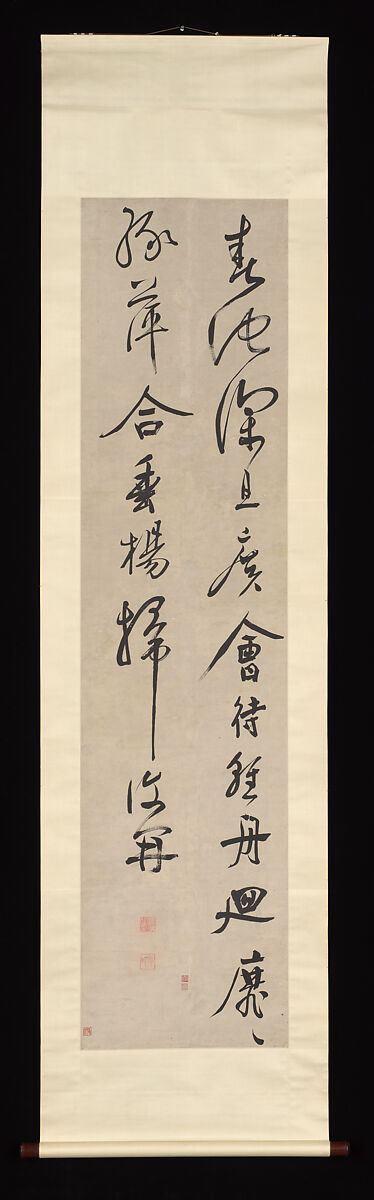 春池深且廣會待輕舟廻靡〻
綠萍合垂楊掃復開